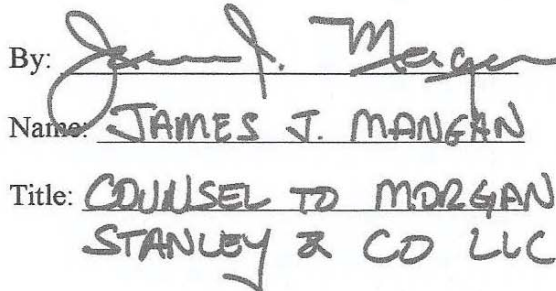 By: James J. Mangan
Name: JAMES J. MANGAN
Title: COUNSEL TO MORGAN
STANLEY & CO LLC